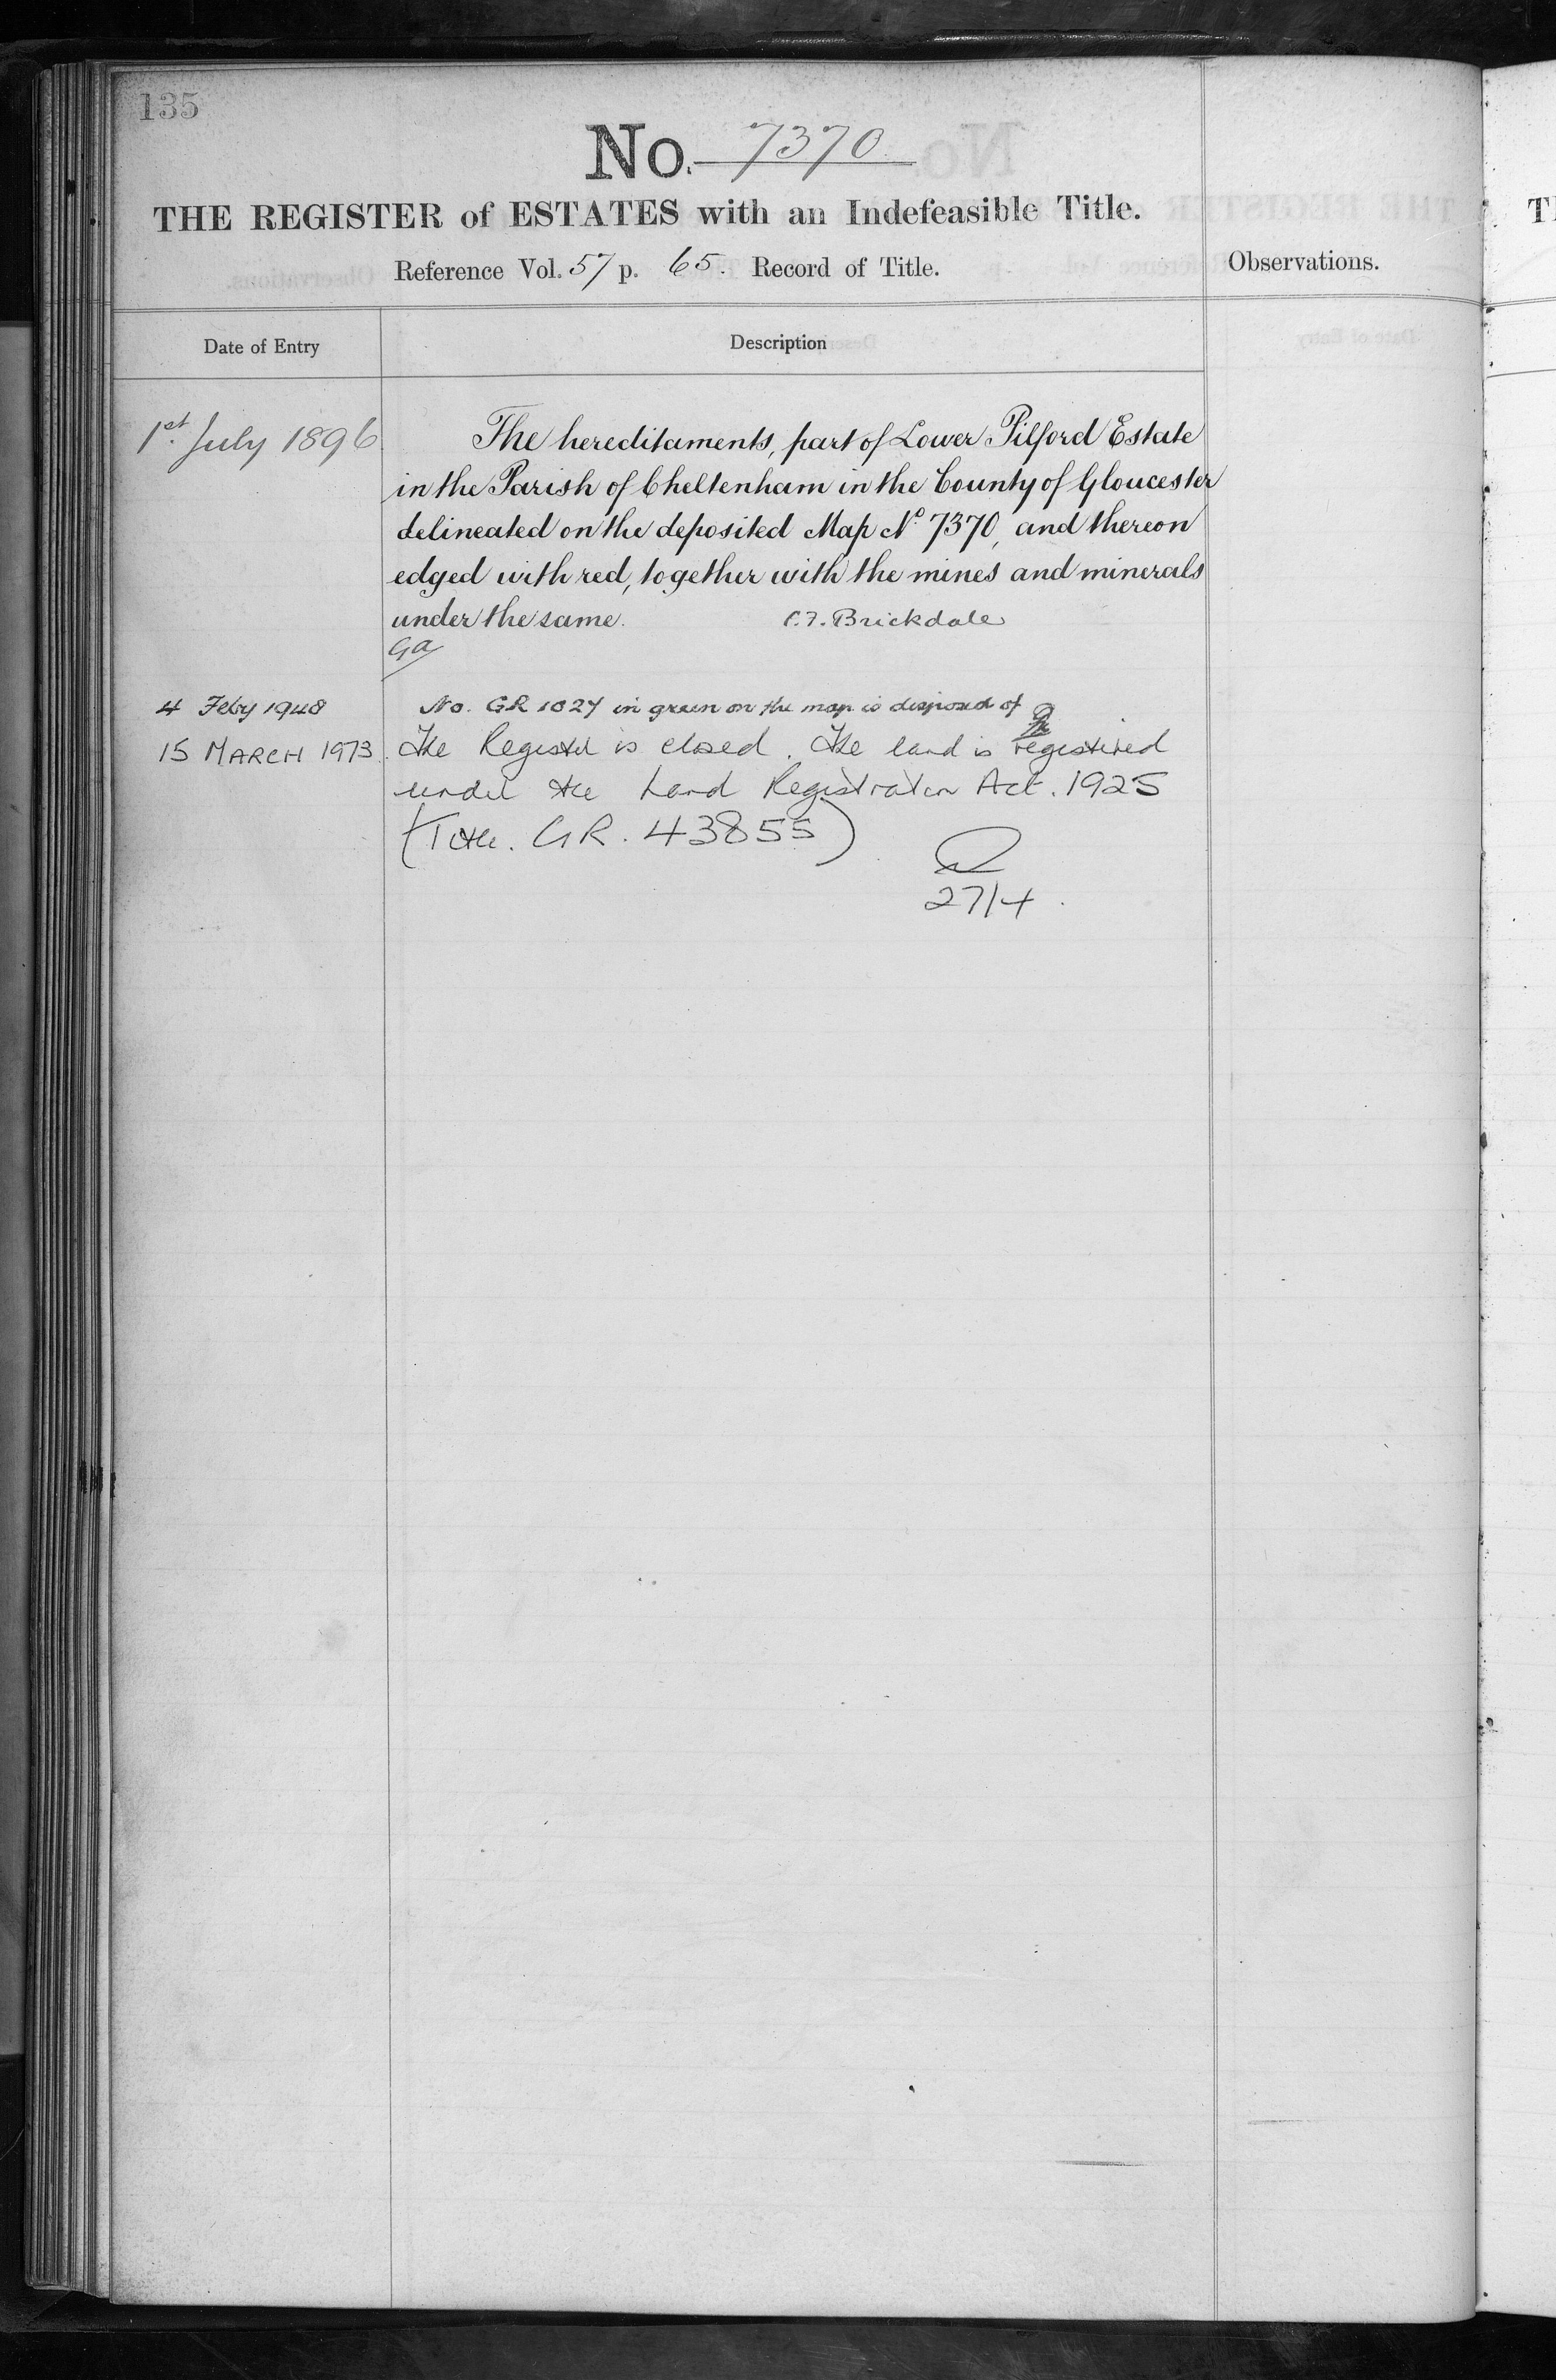 135
No. 7370
THE REGISTER of ESTATES with an Indefeasible Title.
Reference Vol. 57 p. 65. Record of Title.
Observations.
Date of Entry
Description
1st July 1896
The hereditaments, part of Lower Pilford Estate
in the Parish of Cheltenham in the County of Gloucester
delineated on the deposited Map No 7370, and thereon
edged with red, together with the mines and minerals
under the same. C.F. Brickdale
Ga
4 Feby 1948 No. GR 1027 in green on the map is disposed of
15 MARCH 1973. The Register is closed. The land is registered
under the Land Registration Act. 1925
(Title. GR. 43855)
27/4